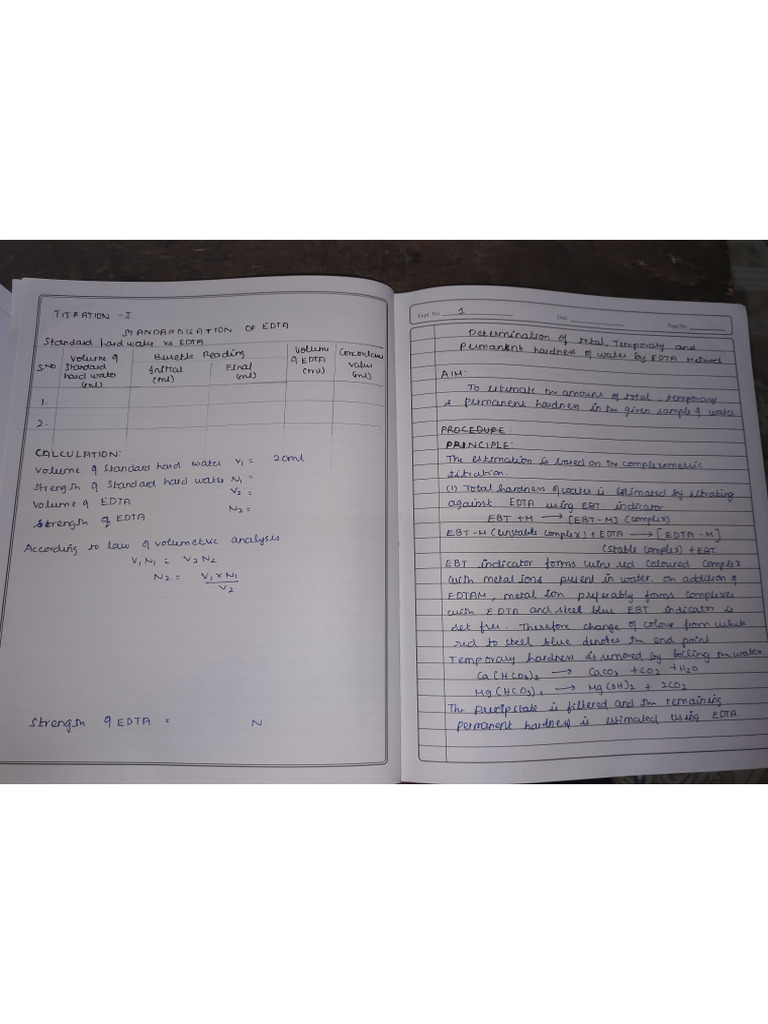 TITRATION - I
STANDARDISATION OF EDTA
Standard hard water vs EDTA
S.NO
Volume of Standard hard water (ml)
Burette Reading
Initial (ml)
Final (ml)
Volume of EDTA (ml)
Concordant value (ml)
1.
2.
CALCULATION:
Volume of Standard hard water V₁ = 20ml
Strength of Standard hard water N₁ =
Volume of EDTA V₂ =
Strength of EDTA N₂ =
According to law of volumetric analysis
V₁N₁ = V₂N₂
N₂ = V₁ × N₁ / V₂
Strength of EDTA = N
Expt. No. 1
Date
Page No.
Determination of total, Temporary and
Permanent hardness of water by EDTA Method
AIM:
To estimate the amount of total, temporary
& permanent hardness in the given sample of water
PROCEDURE:
PRINCIPLE:
The estimation is based on the complexometric
titration.
(1) Total hardness of water is estimated by titrating
against EDTA using EBT indicator
EBT + M → [EBT-M] (complex)
EBT-M (unstable complex) + EDTA → [EDTA-M]
(stable complex) + EBT
EBT indicator forms wine red coloured complex
with metal ions present in water. on addition of
EDTAM, metal ion preferably forms complexes
with EDTA and steel blue EBT indicator is
set free. Therefore change of colour from whole
red to steel blue denotes the end point
Temporary hardness is removed by boiling the water.
Ca(HCO₃)₂ → CaCO₃ + CO₂ + H₂O
Mg(HCO₃)₂ → Mg(OH)₂ + 2CO₂
The precipitate is filtered and the remaining
permanent hardness is estimated using EDTA.